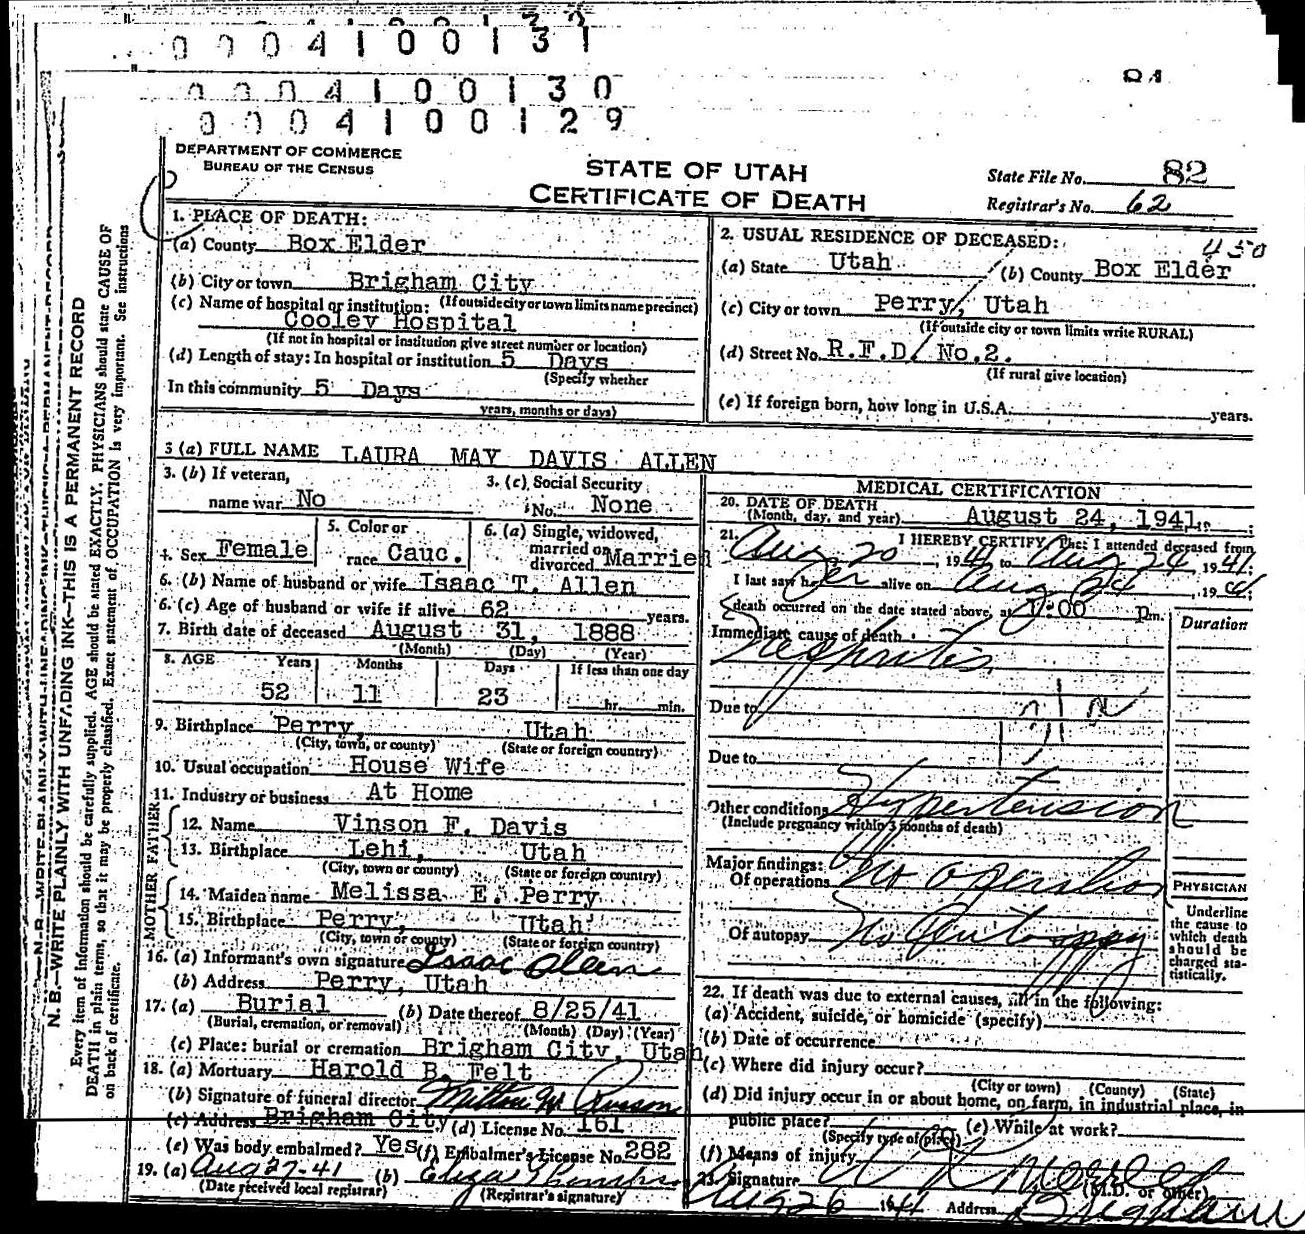 0004100131
0004100130
0004100129
DEPARTMENT OF COMMERCE
BUREAU OF THE CENSUS
STATE OF UTAH
CERTIFICATE OF DEATH
State File No. 82
Registrar's No. 62
1. PLACE OF DEATH:
(a) County Box Elder
(b) City or town Brigham City
(c) Name of hospital or institution: (If outside city or town limits name precinct)
Cooley Hospital
(If not in hospital or institution give street number or location)
(d) Length of stay: In hospital or institution 5 Days
(Specify whether
In this community 5 Days
years, months or days)
2. USUAL RESIDENCE OF DECEASED: 450
(a) State Utah (b) County Box Elder
(c) City or town Perry, Utah
(If outside city or town limits write RURAL)
(d) Street No. R.F.D. No.2.
(If rural give location)
(e) If foreign born, how long in U.S.A. years.
3 (a) FULL NAME LAURA MAY DAVIS ALLEN
3. (b) If veteran,
name war No
3. (c) Social Security
No. None
4. Sex Female
5. Color or
race Cauc.
6. (a) Single, widowed,
married or
divorced Married
6. (b) Name of husband or wife Isaac T. Allen
6. (c) Age of husband or wife if alive 62 years.
7. Birth date of deceased August 31, 1888
(Month) (Day) (Year)
8. AGE Years Months Days If less than one day
52 11 23 hr. min.
9. Birthplace Perry, Utah
(City, town, or county) (State or foreign country)
10. Usual occupation House Wife
11. Industry or business At Home
FATHER
12. Name Vinson F. Davis
13. Birthplace Lehi, Utah
(City, town or county) (State or foreign country)
MOTHER
14. Maiden name Melissa E. Perry
15. Birthplace Perry, Utah
(City, town or county) (State or foreign country)
16. (a) Informant's own signature Isaac Allen
(b) Address Perry, Utah
17. (a) Burial (b) Date thereof 8/25/41
(Burial, cremation, or removal) (Month) (Day) (Year)
(c) Place: burial or cremation Brigham City, Utah
18. (a) Mortuary Harold B. Felt
(b) Signature of funeral director Milton W.
(c) Address Brigham City (d) License No. 161
(e) Was body embalmed? Yes (f) Embalmer's License No. 282
19. (a) Aug 27-41 (b) Eliza
(Date received local registrar) (Registrar's signature)
MEDICAL CERTIFICATION
20. DATE OF DEATH
(Month, day, and year) August 24, 1941.
21. I HEREBY CERTIFY, That I attended deceased from
Aug 20, 1941 to Aug 24 1941.
I last saw her alive on Aug 24, 1941
death occurred on the date stated above, at :00 p.m.
Duration
Immediate cause of death
Nephritis
Due to
Due to
Other conditions Hypertension
(Include pregnancy within 3 months of death)
Major findings:
Of operations No operation
Of autopsy No Autopsy
PHYSICIAN
Underline
the cause to
which death
should be
charged sta-
tistically.
22. If death was due to external causes, fill in the following:
(a) Accident, suicide, or homicide (specify)
(b) Date of occurrence
(c) Where did injury occur?
(City or town) (County) (State)
(d) Did injury occur in or about home, on farm, in industrial place, in
public place? (e) While at work?
(Specify type of place)
(f) Means of injury
23. Signature
(M.D. or other)
Aug 26 1941 Address Brigham
N. B.—WRITE PLAINLY WITH UNFADING INK—THIS IS A PERMANENT RECORD
Every item of information should be carefully supplied. AGE should be stated EXACTLY. PHYSICIANS should state CAUSE OF
DEATH in plain terms, so that it may be properly classified. Exact statement of OCCUPATION is very important. See instructions
on back of certificate.